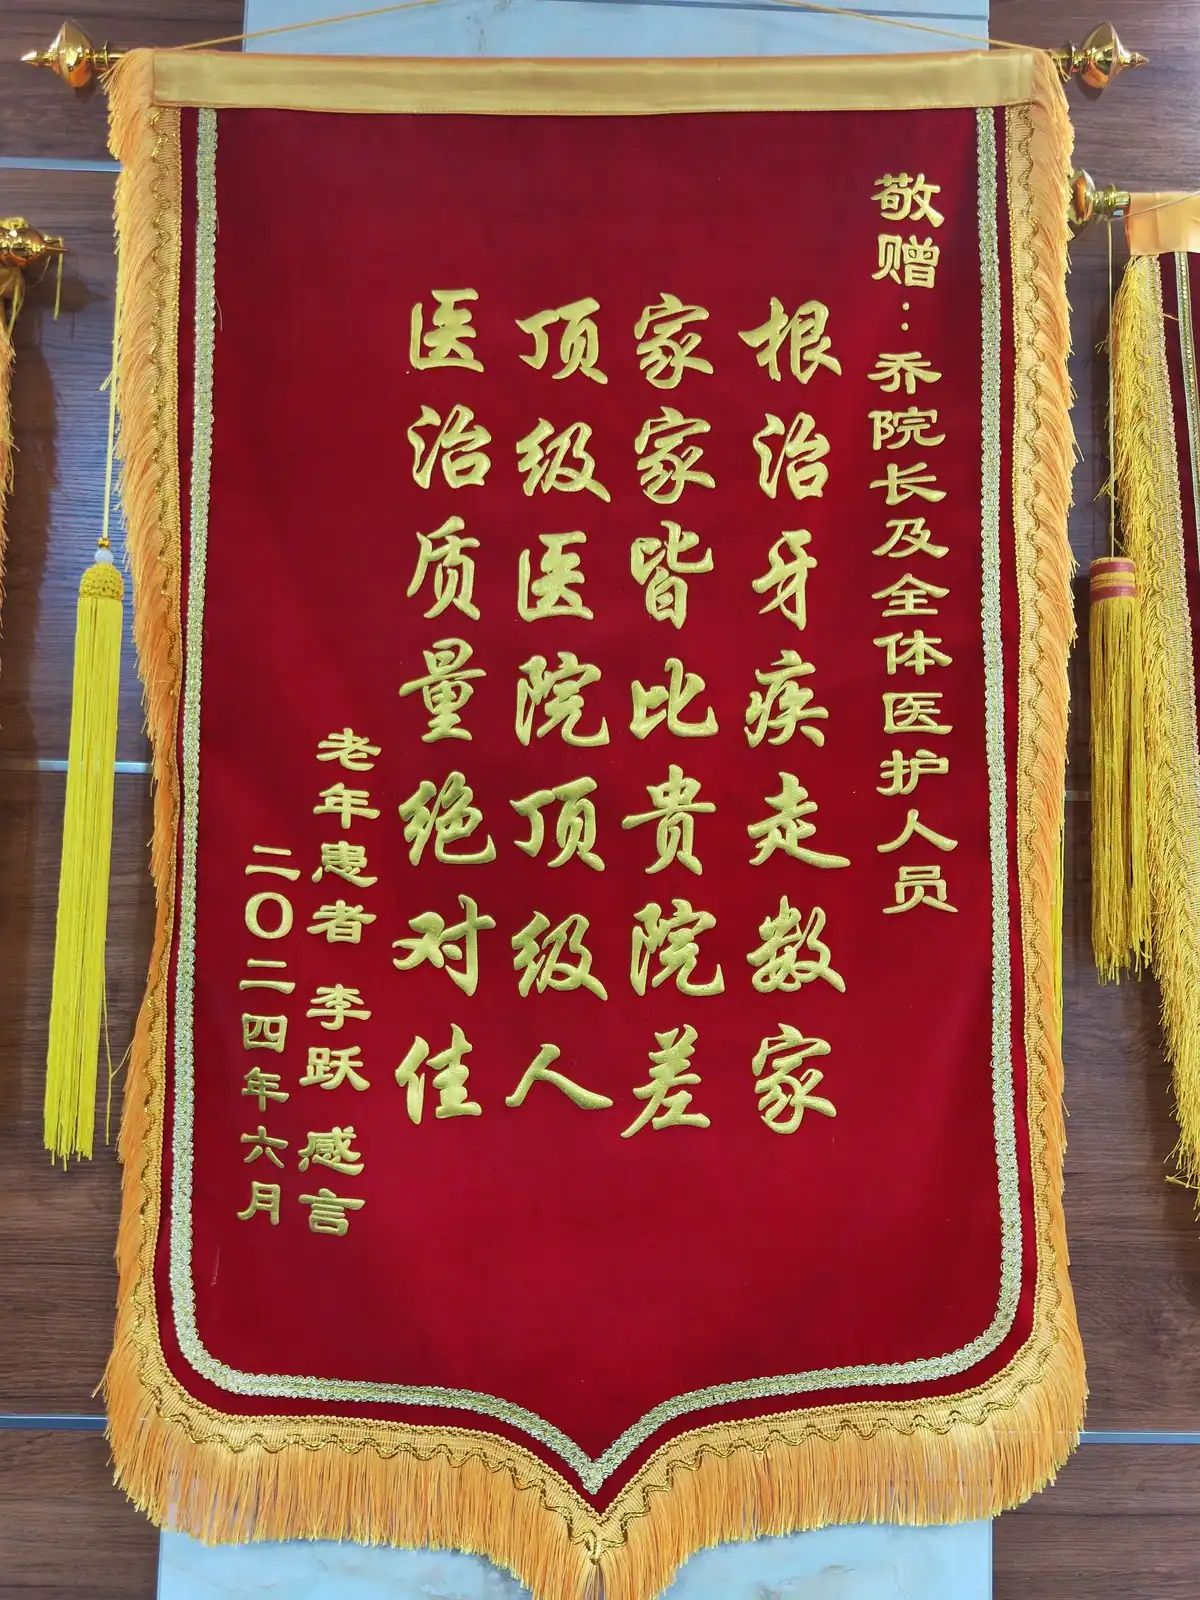 敬赠：乔院长及全体医护人员
根治牙疾走数家
家家皆比贵院差
顶级医院顶级人
医治质量绝对佳
老年患者 李跃 感言
二〇二四年六月